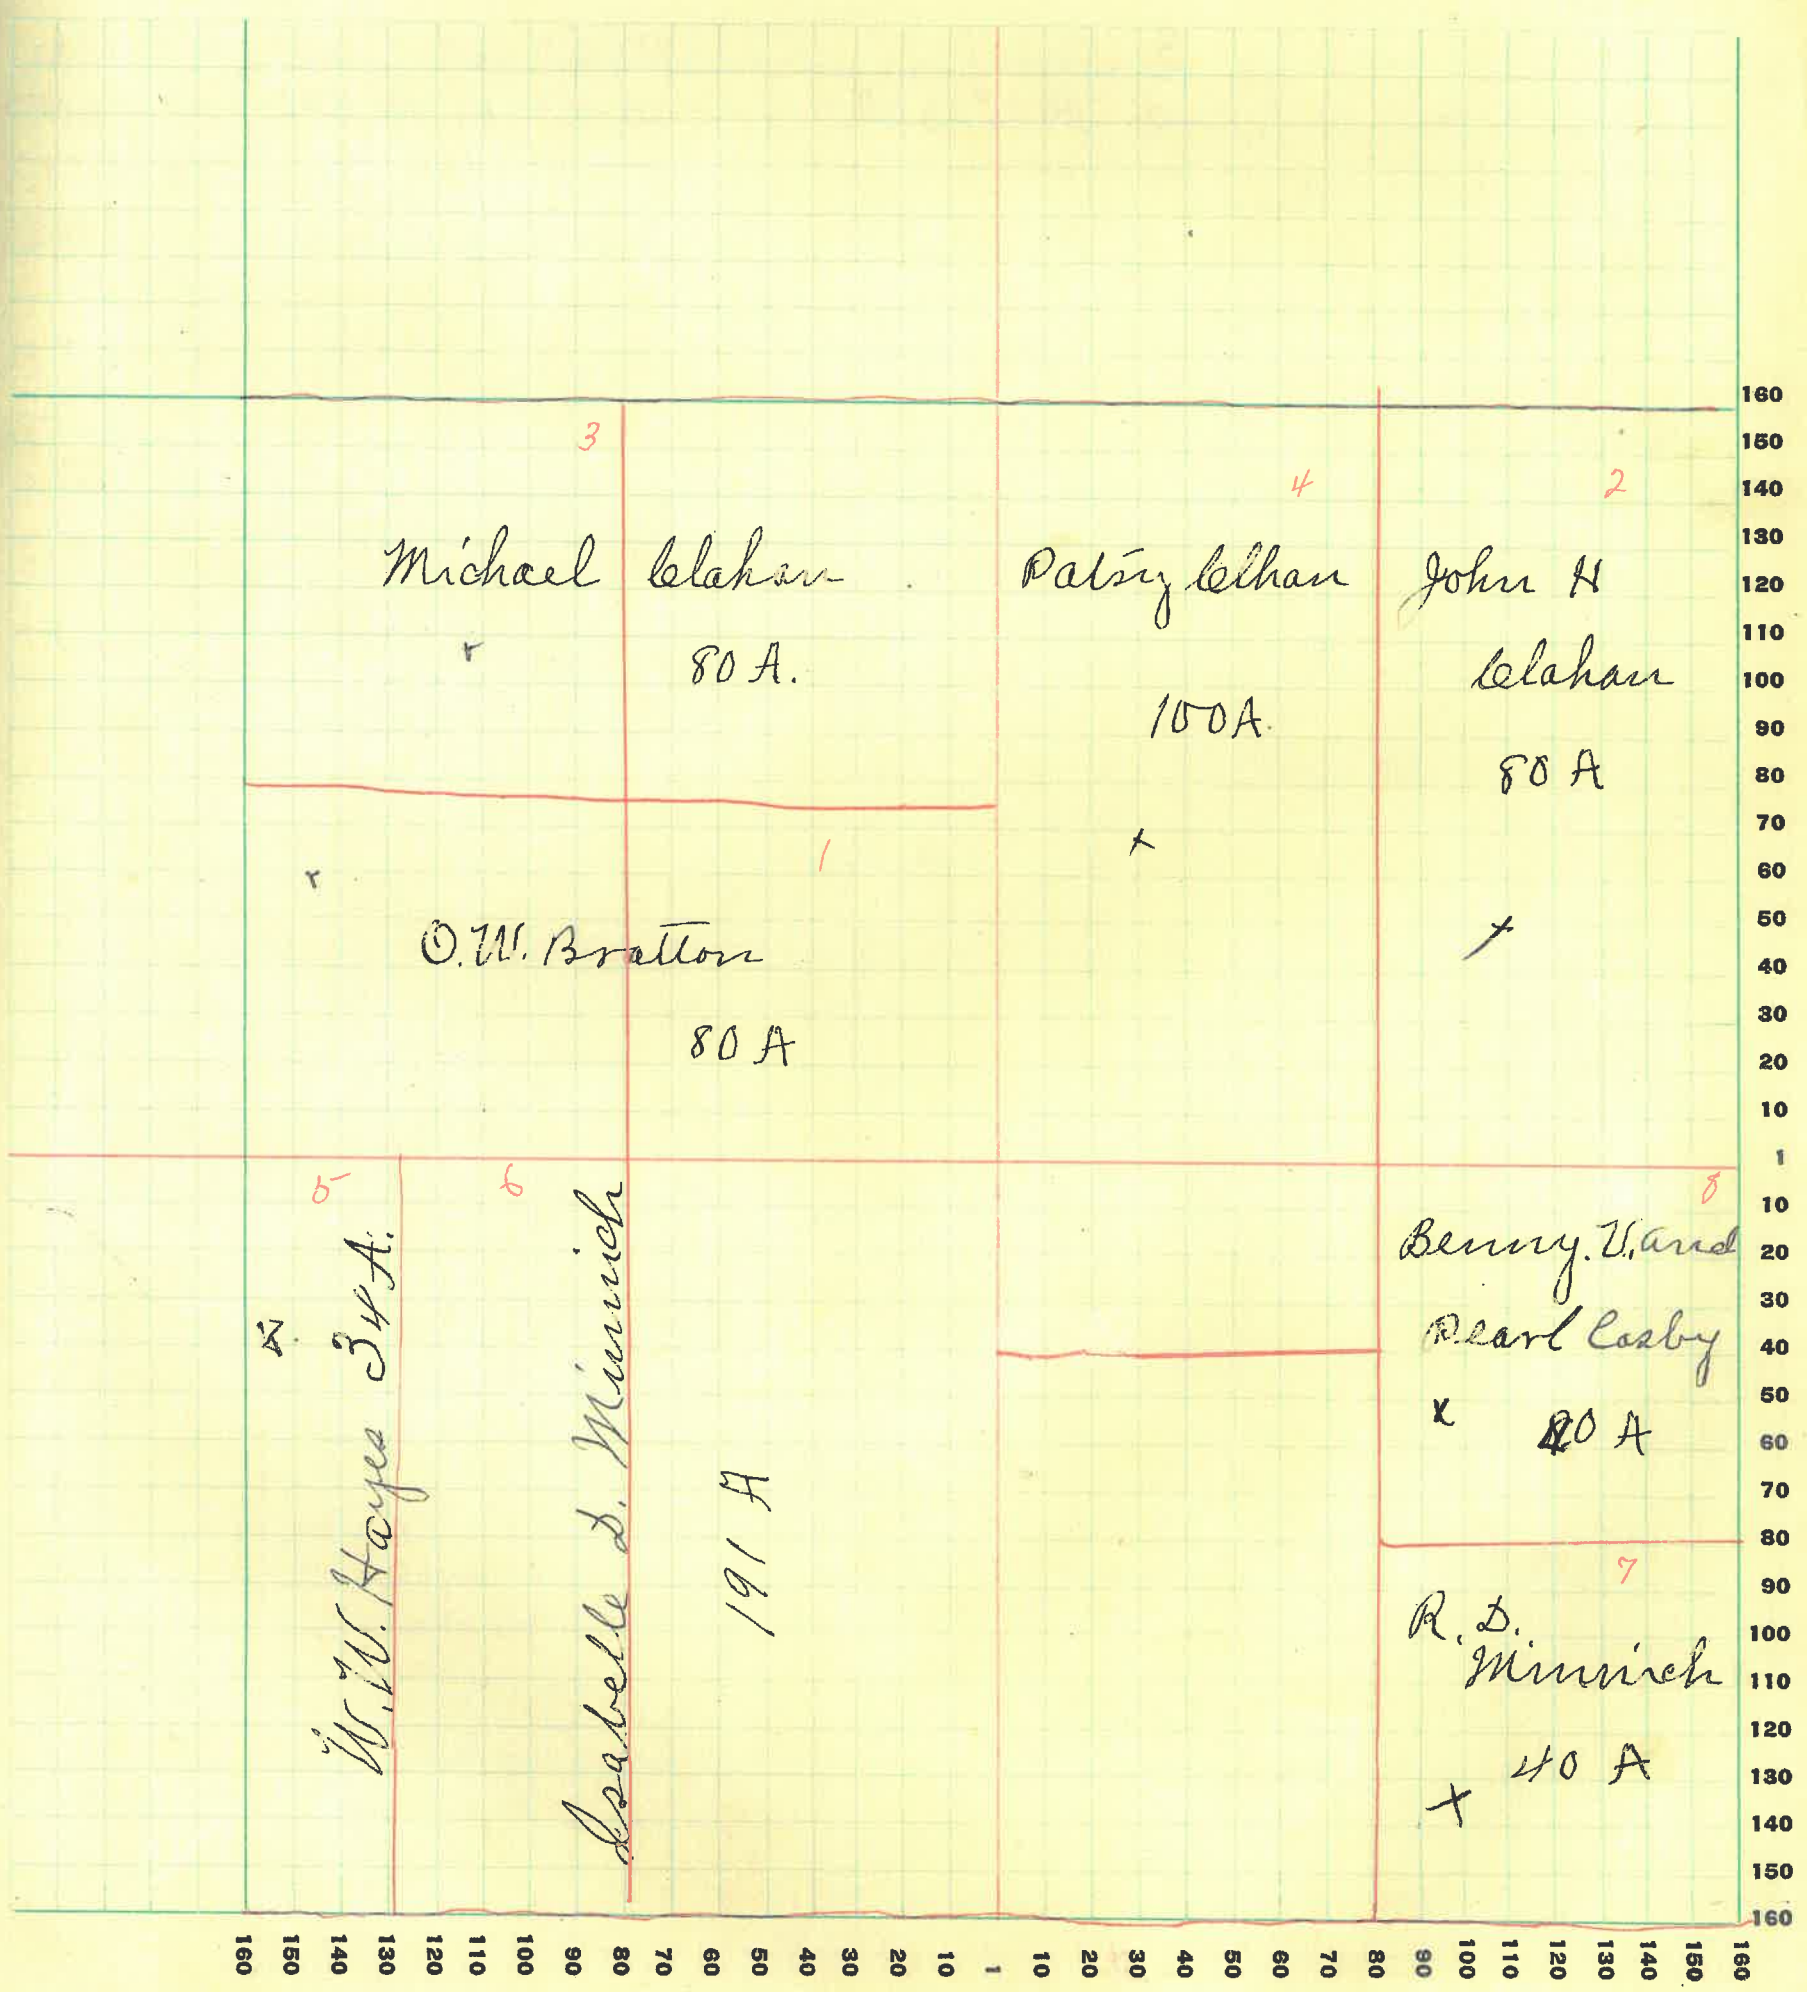 3
4
2
Michael Clahan
80 A.
Patsy Clhan
100 A.
John H
Clahan
80 A
1
O.W. Bratton
80 A
5
W.W. Hayes 34 A.
6
Isabelle D. Minnich
191 A
8
Benny. V. and
Pearl Cosby
0 A
7
R. D.
Minnich
40 A
160
150
140
130
120
110
100
90
80
70
60
50
40
30
20
10
1
10
20
30
40
50
60
70
80
90
100
110
120
130
140
150
160
160 150 140 130 120 110 100 90 80 70 60 50 40 30 20 10 1 10 20 30 40 50 60 70 80 90 100 110 120 130 140 150 160